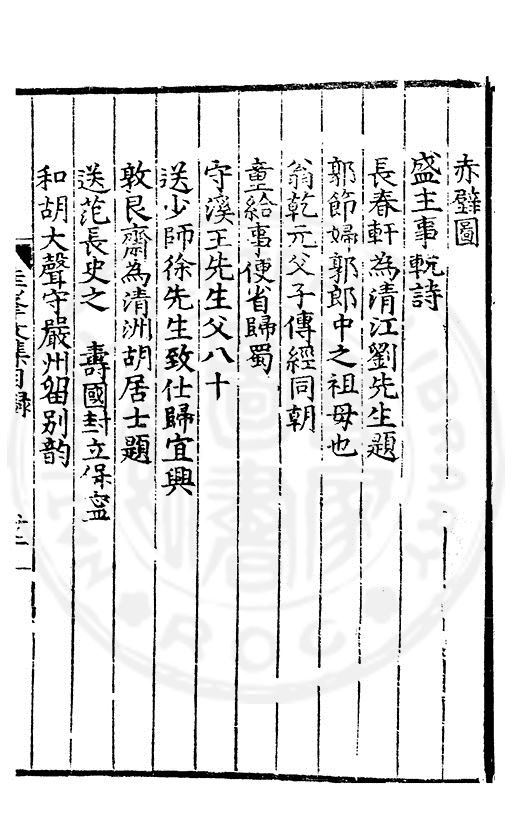 赤壁圖
盛主事輓詩
長春軒為清江劉先生題
郭節婦郭郎中之祖母也
翁乾元父子傳經同朝
童給事便省歸蜀
守溪王先生父八十
送少師徐先生致仕歸宜興
敦艮齋為清洲胡居士題
送范長史之 壽國封立保寧
和胡大聲守嚴州留別韵